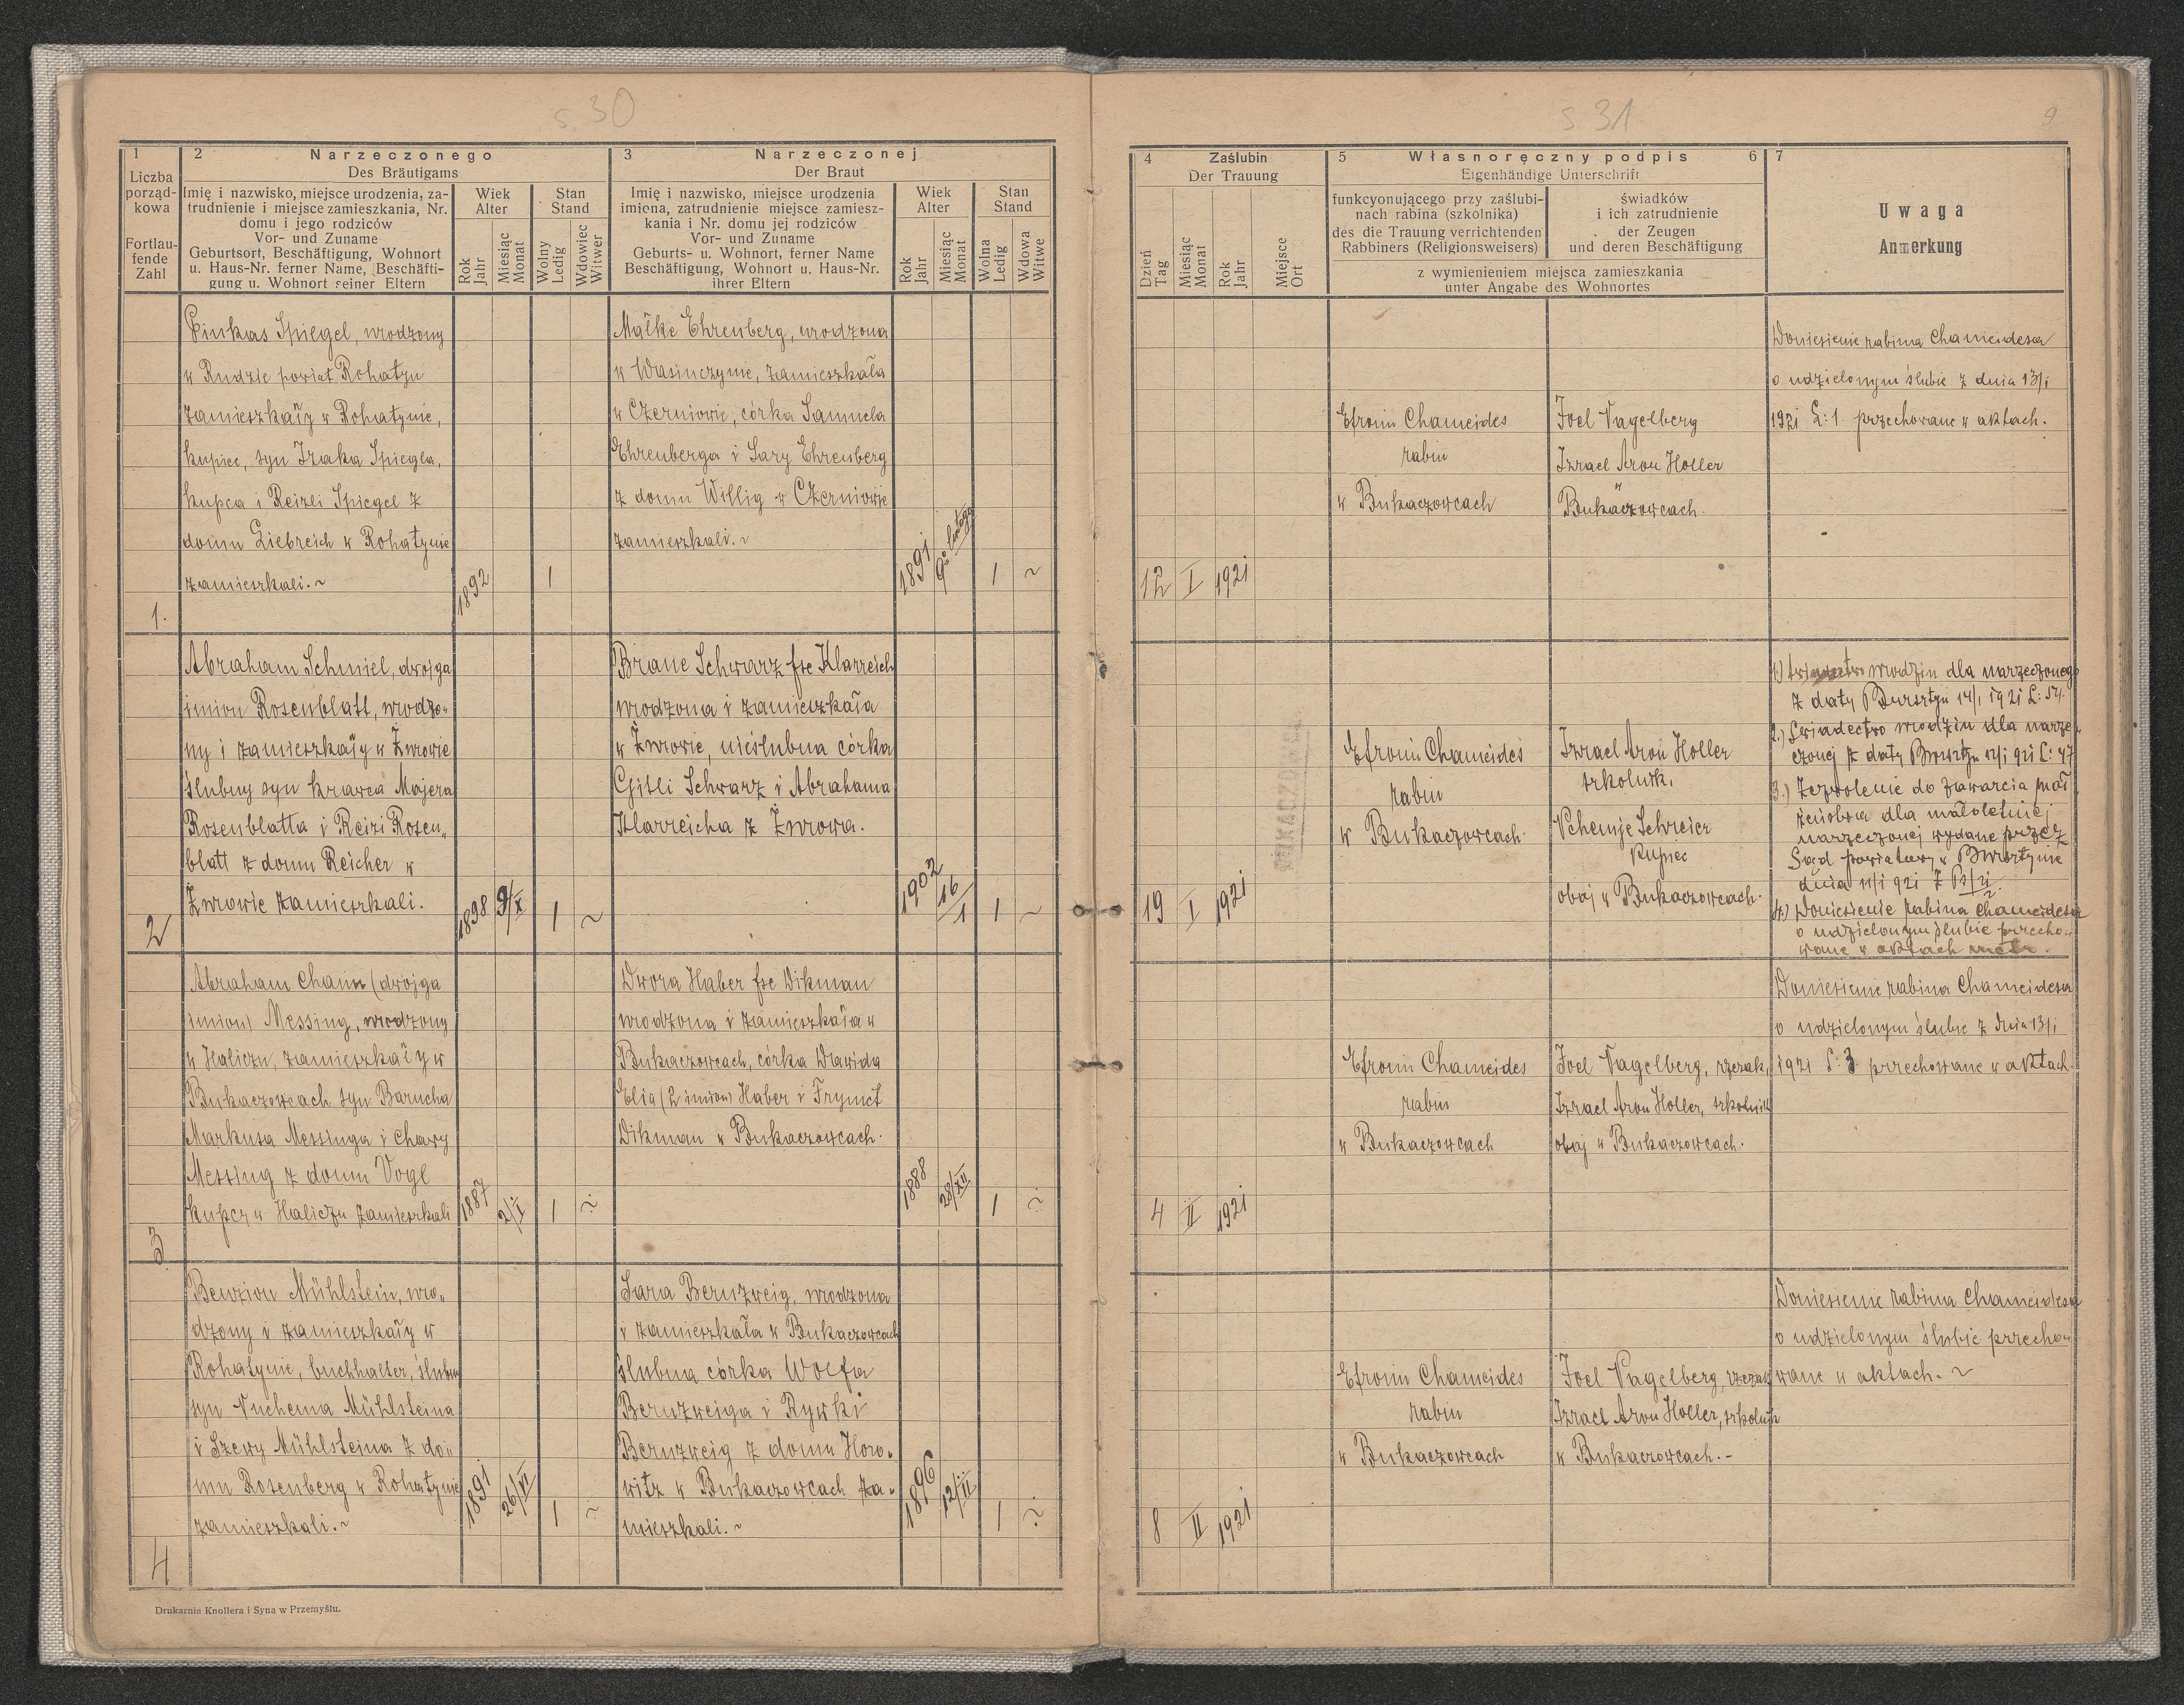 s. 30
1
Liczba
porząd-
kowa
Fortlau-
fende
Zahl
2 Narzeczonego
Des Bräutigams
Imię i nazwisko, miejsce urodzenia, za-
trudnienie i miejsce zamieszkania, Nr.
domu i jego rodziców
Vor- und Zuname
Geburtsort, Beschäftigung, Wohnort
u. Haus-Nr. ferner Name, Beschäfti-
gung u. Wohnort seiner Eltern
Wiek
Alter
Rok
Jahr
Miesiąc
Monat
Stan
Stand
Wolny
Ledig
Wdowiec
Witwer
3 Narzeczonej
Der Braut
Imię i nazwisko, miejsce urodzenia
imiona, zatrudnienie miejsce zamiesz-
kania i Nr. domu jej rodziców
Vor- und Zuname
Geburts- u. Wohnort, ferner Name
Beschäftigung, Wohnort u. Haus-Nr.
ihrer Eltern
Wiek
Alter
Rok
Jahr
Miesiąc
Monat
Stan
Stand
Wolna
Ledig
Wdowa
Witwe
1.
Pinkas Spiegel, urodzony
w Rudzie powiat Rohatyn
zamieszkały w Rohatynie,
kupiec, syn Izaka Spiegla,
kupca i Reizli Spiegel z
domu Liebreich w Rohatynie
zamieszkali. ~
1892
1
Małke Ehrenberg, urodzona
w Wasiuczynie, zamieszkała
w Czerniowie, córka Samuela
Ehrenberga i Sary Ehrenberg
z domu Willig w Czerniowie
zamieszkali. ~
1891
9° lutego
1 ~
2
Abraham Schmiel, dwojga
imion Rosenblatt, urodzo-
ny i zamieszkały w Żurowie
ślubny syn krawca Majera
Rosenblatta i Reizi Rosen-
blatt z domu Reicher w
Żurowie zamieszkali.
1898
9/X
1 ~
Brane Schwarz fse Klarreich
urodzona i zamieszkała
w Żurowie, nieślubna córka
Gitli Schwarz i Abrahama
Klarreicha z Żurowa.
1902
16/1
1 ~
3
Abraham Chaim (dwojga
imion) Messing, urodzony
w Haliczu, zamieszkały w
Bukaczowcach syn Barucha
Markusa Messinga i Chawy
Messing z domu Vogl
kupcy w Haliczu zamieszkali
1887
2/I
1 ~
Dwora Haber fse Dikman
urodzona i zamieszkała w
Bukaczowcach, córka Dawida
Elia (2 imion) Haber i Frymet
Dikman w Bukaczowcach.
1888
28/XII
1 ~
4
Benzion Mühlstein, uro-
dzony i zamieszkały w
Rohatynie, buchhalter, ślubny
syn Nuchema Mühlsteina
i Szewy Mühlsteina z do-
mu Rosenberg w Rohatynie
zamieszkali. ~
1891
26/VI
1 ~
Sara Bernzweig, urodzona
i zamieszkała w Bukaczowcach
ślubna córka Wolfa
Bernzweiga i Rywki
Bernzweig z domu Horo-
witz w Bukaczowcach za-
mieszkali. ~
1896
12/II
1 ~
Drukarnia Knollera i Syna w Przemyślu.
s 31
9
4 Zaślubin
Der Trauung
Dzień
Tag
Miesiąc
Monat
Rok
Jahr
Miejsce
Ort
5 Własnoręczny podpis 6
Eigenhändige Unterschrift
funkcyonującego przy zaślubi-
nach rabina (szkolnika)
des die Trauung verrichtenden
Rabbiners (Religionsweisers)
świadków
i ich zatrudnienie
der Zeugen
und deren Beschäftigung
z wymienieniem miejsca zamieszkania
unter Angabe des Wohnortes
7
Uwaga
Anmerkung
12 I 1921
Efroim Chameides
rabin
w Bukaczowcach
Joel Nagelberg
Izrael Aron Holler
w
Bukaczowcach.
Doniesienie rabina Chameidesa
o udzielonym ślubie z dnia 13/i
1921 L: 1. przechowane w aktach.
19 I 1921
BUKACZOWCE
Efroim Chameides
rabin
w Bukaczowcach.
Izrael Aron Holler
szkolnik,
Nchemje Schreier
kupiec
obaj w Bukaczowcach.
1.) urodzin dla narzeczonego
z daty Bursztyn 14/1 1921 L: 54.
2.) Świadectwo urodzin dla narze-
czonej z daty Bursztyn 12/i 921 L: 47
3.) Zezwolenie do zawarcia mał-
żeństwa dla małoletniej
narzeczonej wydane przez
Sąd powiatowy w Bursztynie
dnia 11/i 921
4.) Doniesienie rabina Chameidesa
o udzielonym ślubie przecho-
wane w aktach
4 II 1921
Efroim Chameides
rabin
w Bukaczowcach
Joel Nagelberg, rzezak,
Izrael Aron Holler, szkolnik
obaj w Bukaczowcach.
Doniesienie rabina Chameidesa
o udzielonym ślubie z dnia 13/i
1921 L: 3 przechowane w aktach.
8 II 1921
Efroim Chameides
rabin
w Bukaczowcach
Joel Nagelberg, rzezak
Izrael Aron Holler, szkolnik
w Bukaczowcach. -
Doniesienie rabina Chameidesa
o udzielonym ślubie przecho-
wane w aktach. ~